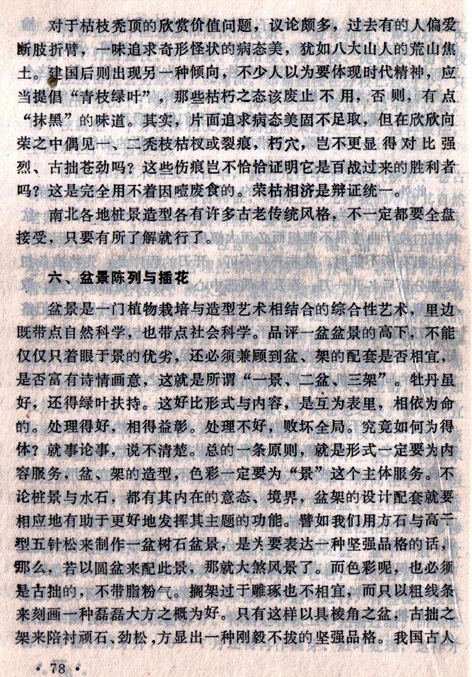 对于枯枝秃顶的欣赏价值问题，议论颇多，过去有的人偏爱
断肢折臂，一味追求奇形怪状的病态美，犹如八大山人的荒山焦
土。建国后则出现另一种倾向，不少人以为要体现时代精神，应
当提倡“青枝绿叶”，那些枯朽之态该废止不用，否则，有点
“抹黑”的味道。其实，片面追求病态美固不足取，但在欣欣向
荣之中偶见一、二秃枝枯杈或裂痕，朽穴，岂不更显得对比强
烈、古拙苍劲吗？这些伤痕岂不恰恰证明它是百战过来的胜利者
吗？这是完全用不着因噎废食的。荣枯相济是辩证统一。
南北各地桩景造型各有许多古老传统风格，不一定都要全盘
接受，只要有所了解就行了。
六、盆景陈列与插花
盆景是一门植物栽培与造型艺术相结合的综合性艺术，里边
既带点自然科学，也带点社会科学。品评一盆盆景的高下，不能
仅仅只着眼于景的优劣，还必须兼顾到盆、架的配套是否相宜，
是否富有诗情画意，这就是所谓“一景、二盆、三架”。牡丹虽
好，还得绿叶扶持。这好比形式与内容，是互为表里，相依为命
的。处理得好，相得益彰。处理不好，败坏全局。究竟如何为得
体？就事论事，说不清楚。总的一条原则，就是形式一定要为内
容服务，盆、架的造型，色彩一定要为“景”这个主体服务。不
论桩景与水石，都有其内在的意态、境界，盆架的设计配套就要
相应地有助于更好地发挥其主题的功能。譬如我们用方石与高干
型五针松来制作一盆树石盆景，是为要表达一种坚强品格的话，
那么，若以圆盆来配此景，那就大煞风景了。而色彩呢，也必须
是古拙的，不带脂粉气。搁架过于雕琢也不相宜，而只以粗线条
来刻画一种磊磊大方之概为好。只有这样以具棱角之盆，古拙之
架来陪衬顽石、劲松，方显出一种刚毅不拔的坚强品格。我国古人
· 78 ·